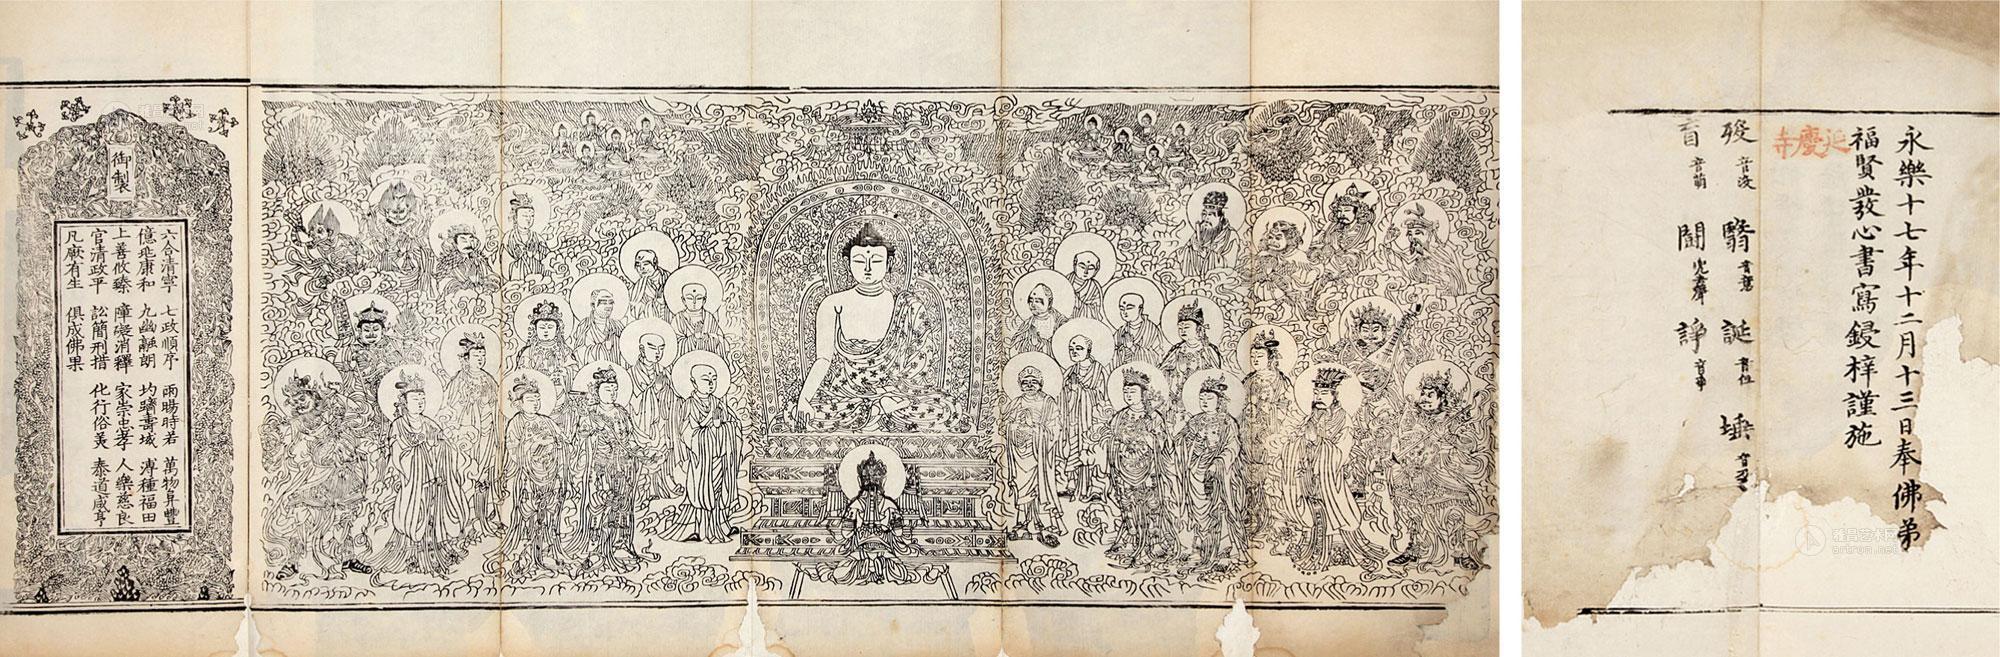 御製
六合清寧 七政順序 雨暘時若 萬物阜豐
億兆康和 九幽融朗 均躋壽域 溥種福田
上善攸臻 障礙消釋 家崇忠孝 人樂慈良
官清政平 訟簡刑措 化行俗美 泰道咸亨
凡厥有生 俱成佛果
永樂十七年十二月十三日奉佛弟
福賢發心書寫鋟梓謹施
延慶寺
翳 音意 誕 音但 埵
盲 音萌 諍 音争
雅昌艺术网
artron.net